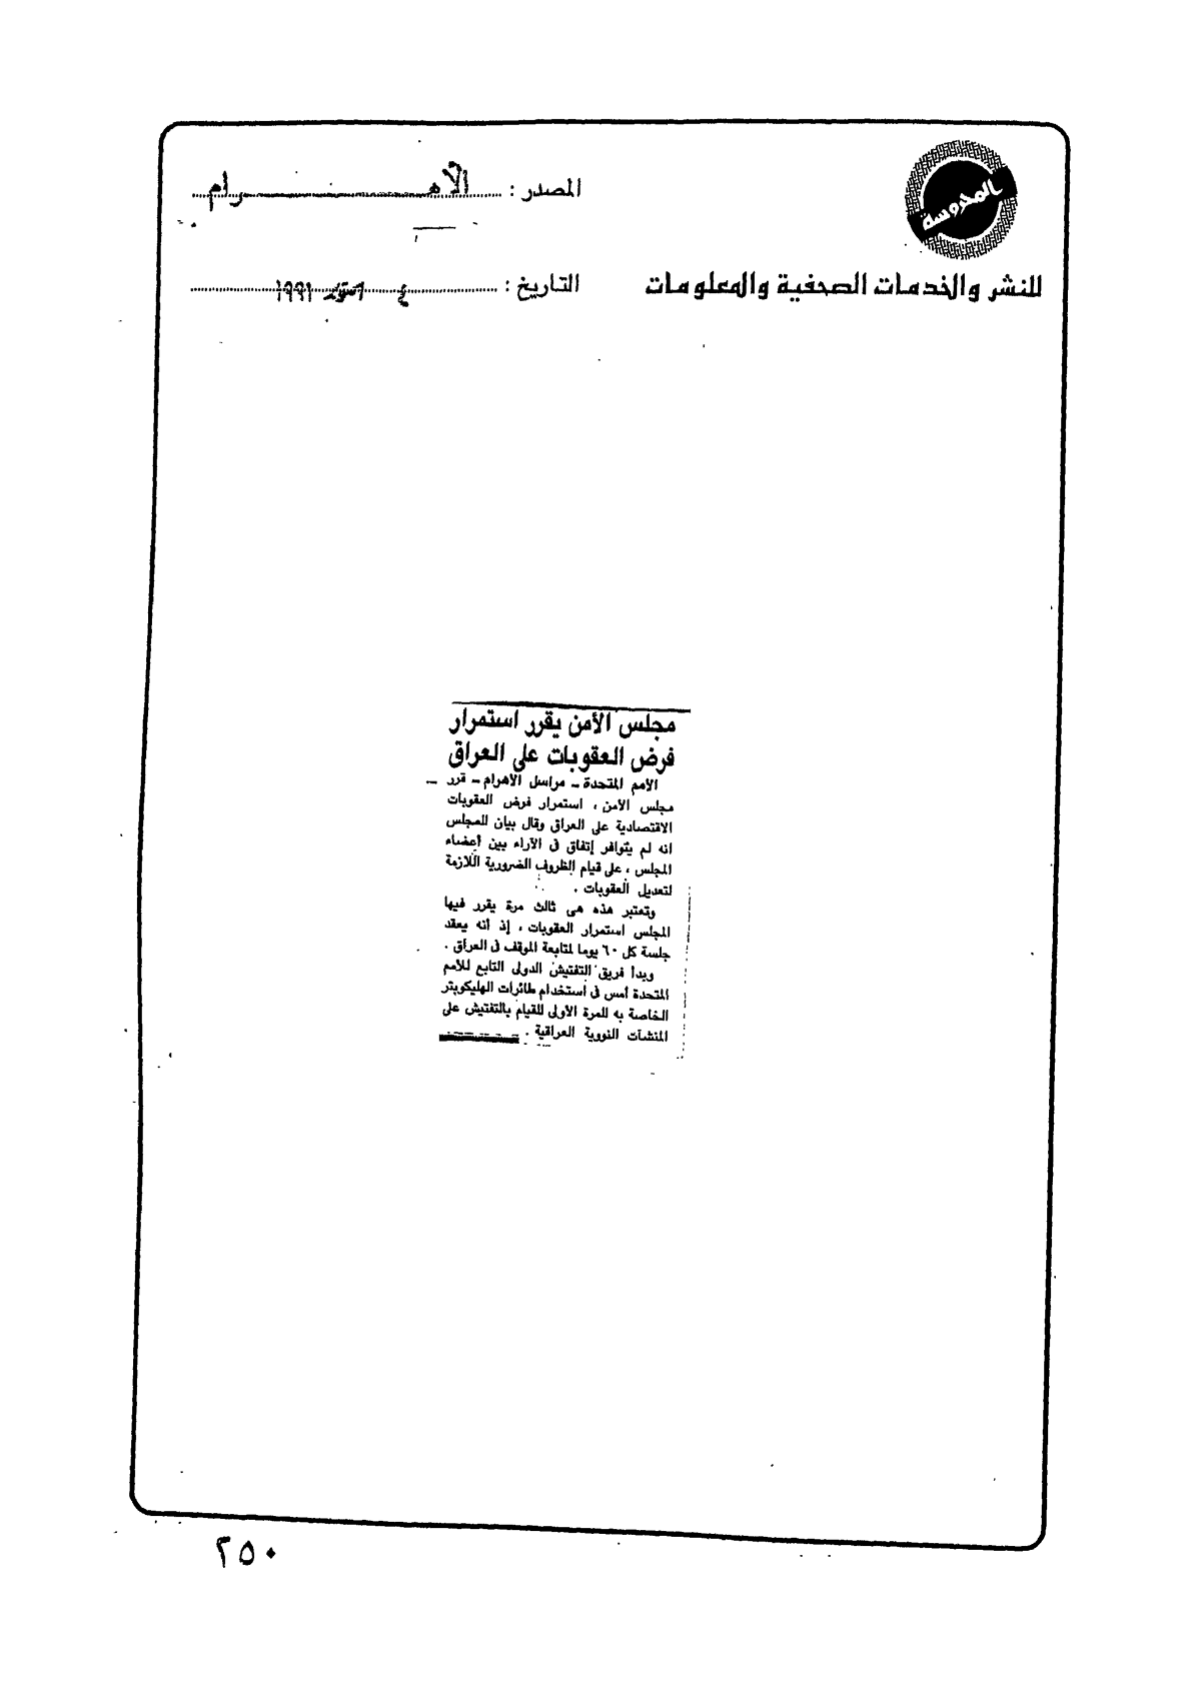 المحروسة
للنشر والخدمات الصحفية والمعلومات
المصدر : الأهــــرام
التاريخ : ٤ اكتوبر ١٩٩١
مجلس الأمن يقرر استمرار
فرض العقوبات على العراق
الأمم المتحدة ـ مراسل الأهرام ـ قرر
مجلس الأمن ، استمرار فرض العقوبات
الاقتصادية على العراق وقال بيان للمجلس
انه لم يتوافر إتفاق فى الآراء بين أعضاء
المجلس ، على قيام الظروف الضرورية اللازمة
لتعديل العقوبات .
وتعتبر هذه هى ثالث مرة يقرر فيها
المجلس استمرار العقوبات ، إذ أنه يعقد
جلسة كل ٦٠ يوما لمتابعة الموقف فى العراق .
وبدأ فريق التفتيش الدولى التابع للأمم
المتحدة أمس فى أستخدام طائرات الهليكوبتر
الخاصة به للمرة الأولى للقيام بالتفتيش على
المنشآت النووية العراقية .
٢٥٠